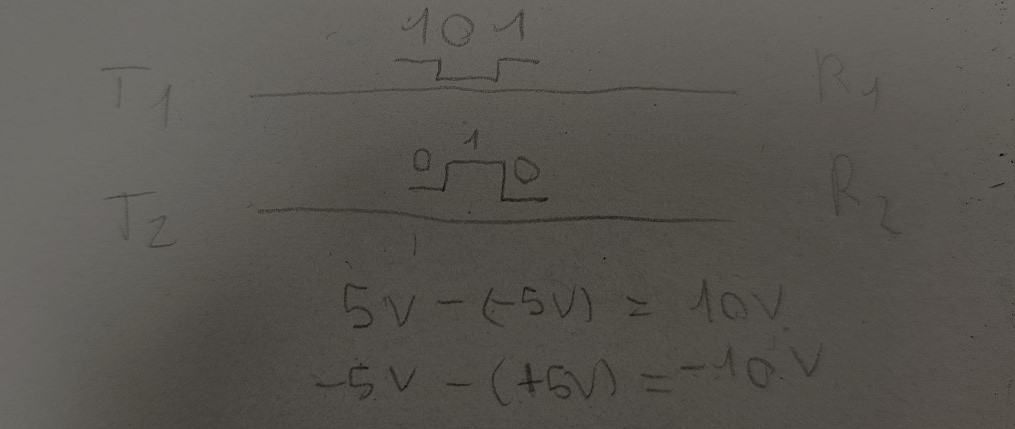 1 0 1
T1 R1
0 1 0
T2 R2
5V - (-5V) = 10V
-5V - (+5V) = -10V